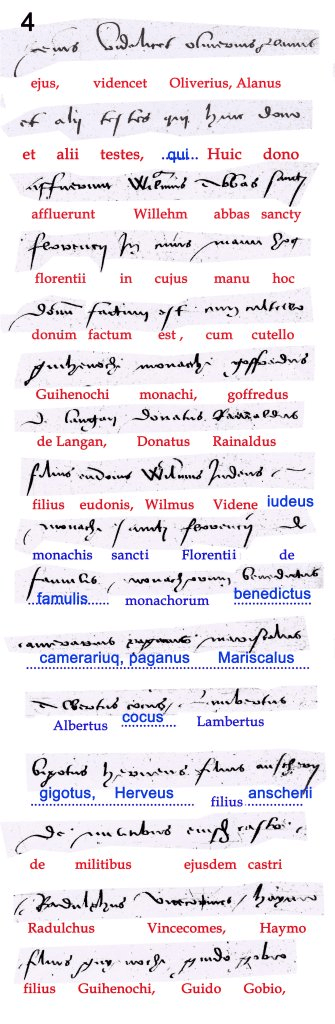 4
ejus, videncet Oliverius, Alanus
et alii testes, ..qui.. Huic dono
affluerunt Willehm abbas sancty
florentii in cujus manu hoc
donum factum est, cum cutello
Guihenochi monachi, goffredus
de Langan, Donatus Rainaldus
filius eudonis, Wilmus Videne iudeus
monachis sancti Florentii de
famulis monachorum benedictus
camerariuq, paganus Mariscalus
Albertus cocus Lambertus
gigotus, Herveus filius anscheni
de militibus ejusdem castri
Radulchus Vincecomes, Haymo
filius Guihenochi, Guido Gobio,